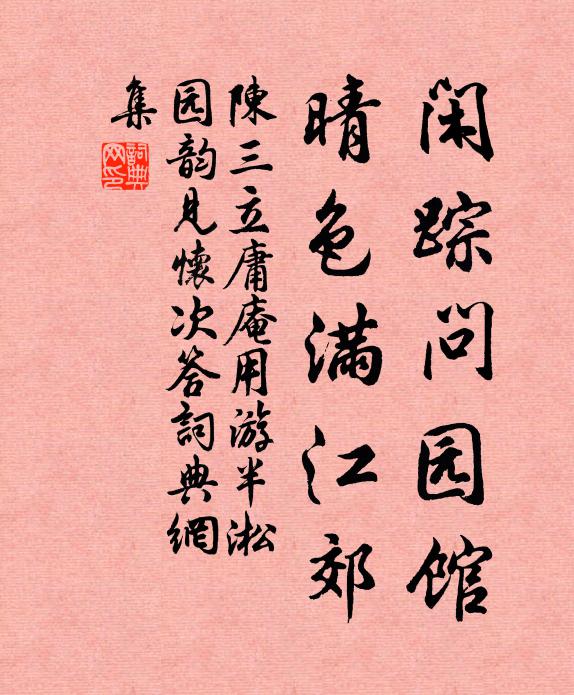 闲踪问园馆
晴色满江郊
陳三立庸庵用游半淞
园韵見懷次答詞典網
集
詞典
网印